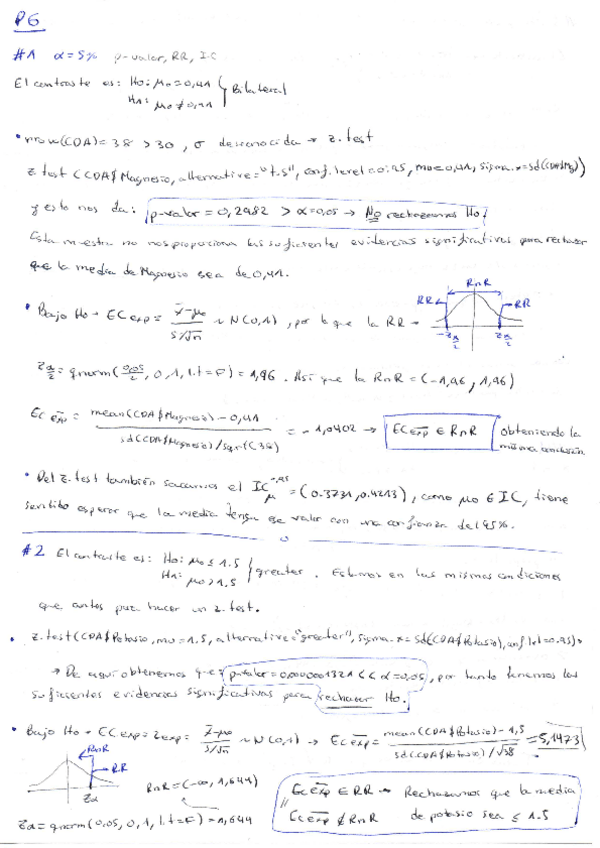 P6
#1 α=5% p-valor, RR, I.C
El contraste es: H0: μ0=0,41
H1: μ0≠0,41 } Bilateral
• nrow(CDA)=38 >30, σ desconocida → z.test
z.test(CDA$Magnesio, alternative="t.s", conf.level=0.95, mu=0,41, sigma.x=sd(CDA$Mg))
y esto nos da: p-valor = 0,2982 > α=0,05 → No rechazamos H0.
Esta muestra no nos proporciona las suficientes evidencias significativas para rechazar
que la media de Magnesio sea de 0,41.
• Bajo H0 → EC exp = x̄-μ0 / s/√n ~ N(0,1), por lo que la RR →
RnR
RR RR
-zα/2 zα/2
zα/2 = qnorm(0,05/2, 0, 1, l.t=F) = 1,96. Así que la RnR = (-1,96, 1,96)
EC exp = mean(CDA$Magnesio) - 0,41 / sd(CDA$Magnesio)/sqrt(38) = -1,0402 → EC exp ∈ RnR obteniendo la
misma conclusión.
• Del z.test también sacamos el IC μ 0,95 = (0.3731, 0.4213), como μ0 ∈ IC, tiene
sentido esperar que la media tenga ese valor con una confianza del 95%.
#2 El contraste es: H0: μ0 ≤ 1.5
H1: μ0 > 1.5 } greater. Estamos en las mismas condiciones
que antes para hacer un z.test.
• z.test(CDA$Potasio, mu=1.5, alternative="greater", sigma.x=sd(CDA$Potasio), conf.lel=0.95).
→ De aquí obtenemos que p-valor=0,0000001321 << α=0,05, por tanto tenemos las
suficientes evidencias significativas para rechazar H0.
• Bajo H0 → EC exp = z exp = x̄-μ0 / s/√n ~ N(0,1) → EC exp = mean(CDA$Potasio) - 1,5 / sd(CDA$Potasio)/√38 = 5,1473
RnR
RR
zα
RnR = (-∞, 1,644)
zα = qnorm(0,05, 0, 1, l.t=F) = 1,644
EC exp ∈ RR → Rechazamos que la media
EC exp ∉ RnR de potasio sea ≤ 1.5